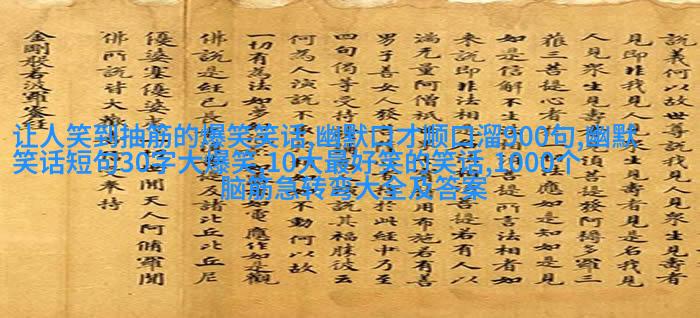 让人笑到抽筋的爆笑笑话,幽默口才顺口溜900句,幽默
笑话短句30字大爆笑,10大最好笑的笑话,1000个
脑筋急转弯大全及答案
說義何以故世尊說我見人見衆生見壽者
見即非我見人見壽者見是名我見
人見衆生見壽者須菩提發阿耨多羅三
菩提心者應如是知如是見
如是信解不生所言法相者如
來說即非法相須菩提若有人以
滿無量阿僧祇用布施若有善
男子善女人發於此經乃至
四句偈等受持說其福勝彼云
何為人演說不不動何以故
一切有為法如電應作如是觀
佛說是經已長及諸比丘比丘尼
優婆塞優婆間天人阿脩羅聞
佛所說皆大奉持
金剛般若波羅蜜經